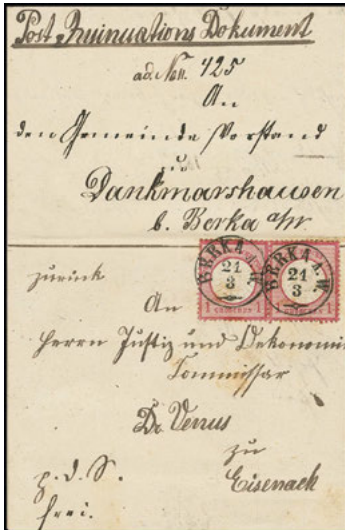 Post Insinuations Dokument
ad. Nos. 425
An
den Gemeinde Vorstand
zu
Dankmarshausen
b. Berka a/W.
BERKA A. W.
21
3
BERKA A. W.
21
3
1 GROSCHEN 1
1 GROSCHEN 1
zurück
An
Herrn Justiz und Oekonomie
Commissar
Dr. Venus
zu
Eisenach
p. d. S.
frei.